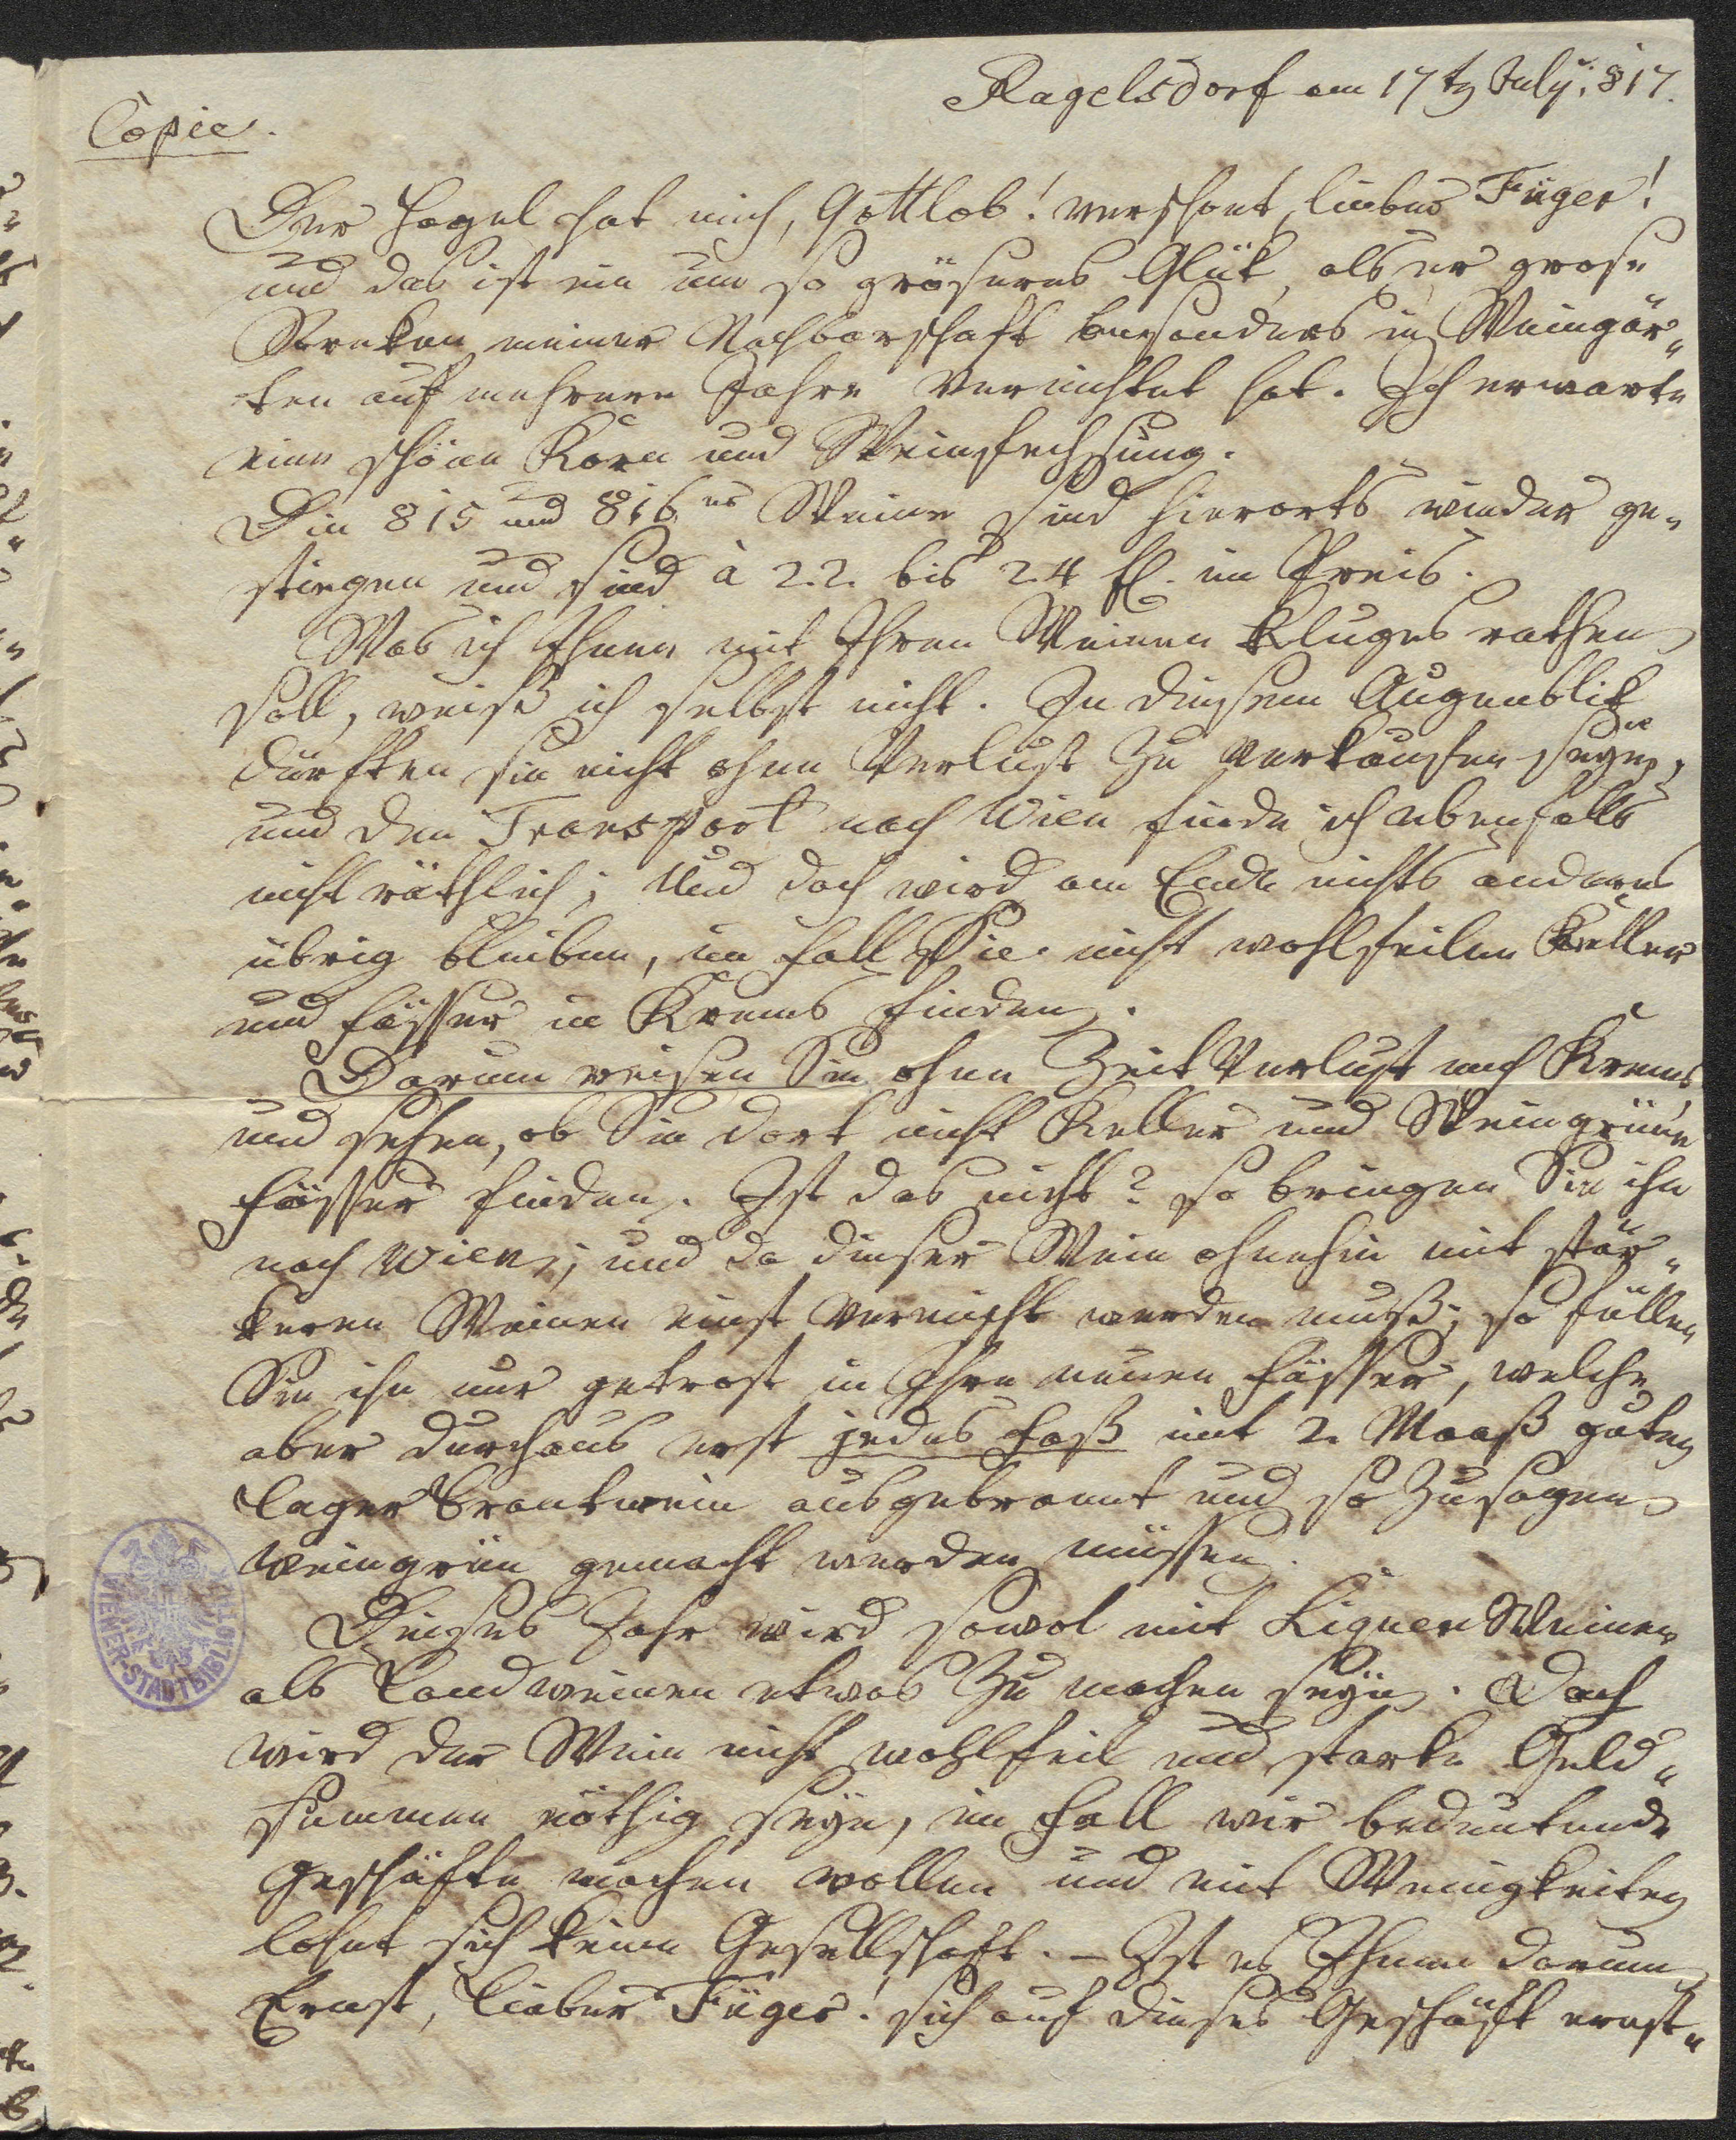 Ragelsdorf am 17tn July. 817.
Copie.
Der Hagel hat mich, Gottlob! verschont, lieber Füger!
und das ist ein um so gröseres Glük, als er grose
Streken meiner Nachbarschaft besonders in Weingär„
ten auf mehrere Jahre vernichtet hat. Ich erwarte
eine schöne Korn und Weinfechsung.
Die 815 und 816er Weine sind hierorts wieder ge„
stiegen und sind à 22. bis 24 fl. im Preis.
Was ich Ihnen mit Ihren Weinen kluges rathen
soll, weiß ich selbst nicht. In diesem Augenblik
dürften sie nicht ohne Verlust zu verkaufen seyn,
und den Transport nach Wien finde ich ebenfalls
nicht räthlich; Und doch wird am Ende nichts anderes
übrig bleiben, im Fall Sie nicht wohlfeilen Keller
und Fässer in Krems finden.
Darum reisen Sie ohne Zeit Verlust nach Krems
und sehen, ob Sie dort nicht Keller und Weingrüne
Fässer finden. Ist das nicht? so bringen Sie ihn
nach Wien; und da dieser Wein ohnehin mit stär„
keren Weinen einst vermischt werden muß; so füllen
Sie ihn nur getrost in Ihre neuen Fässer, welche
aber durchaus erst jedes Faß mit 2. Maaß guten
Lager Brantwein ausgebrannt und so zusagen
weingrün gemacht werden müssen.
Dieses Jahr wird sowol mit Ligner Weinen
als Landweinen etwas zu machen seyn. Doch
wird der Wein nicht wohlfeil und starke Geld„
summen nöthig seyn, im Fall wir bedeutende
Geschäfte machen wollen und mit Wenigkeiten
lohnt sich keine Gesellschaft. – Ist es Ihnen darum
Ernst, lieber Füger! sich auf dieses Geschäft ernst„
WIENER-STADTBIBLIOTHEK